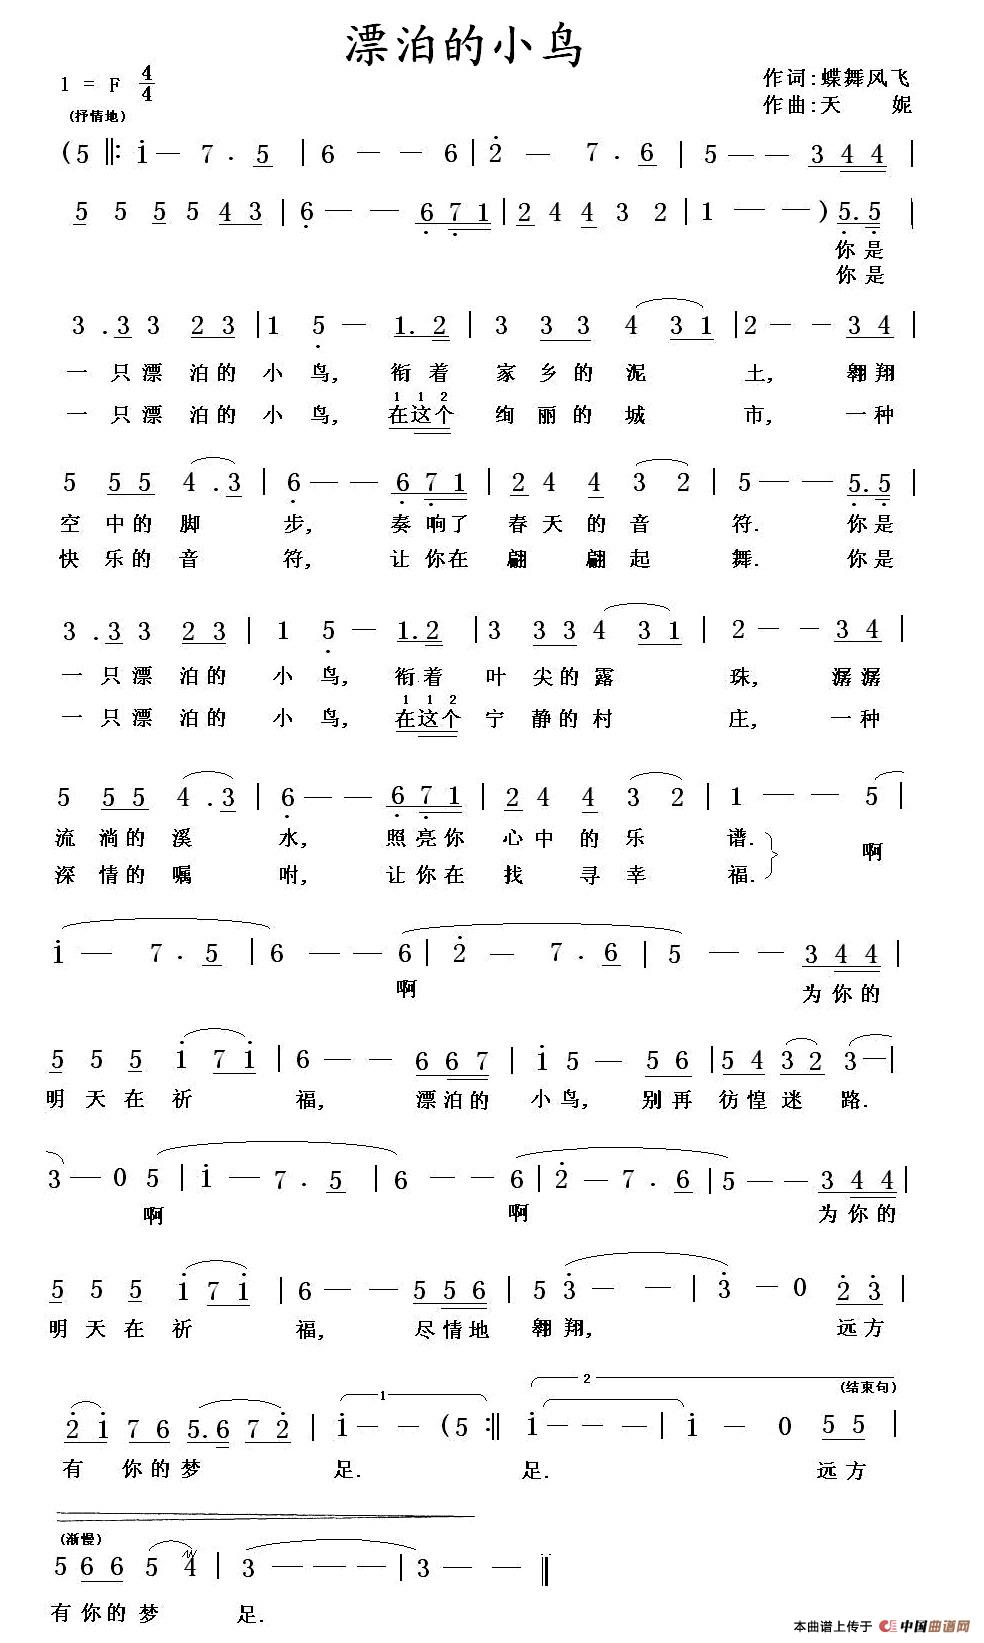 漂泊的小鸟
1 = F 4/4
作词:蝶舞风飞
作曲:天 妮
(抒情地)
(5 ‖: i — 7 . 5 | 6 — — 6 | 2 — 7 . 6 | 5 — — 3 4 4 |
5 5 5 5 4 3 | 6 — — 6 7 1 | 2 4 4 3 2 | 1 — — ) 5. 5 |
你是
你是
3 . 3 3 2 3 | 1 5 — 1. 2 | 3 3 3 4 3 1 | 2 — — 3 4 |
一只漂泊的小鸟, 衔着家乡的泥土, 翱翔
1 1 2
一只漂泊的小鸟, 在这个绚丽的城市, 一种
5 5 5 4 . 3 | 6 — — 6 7 1 | 2 4 4 3 2 | 5 — — 5. 5 |
空中的脚步, 奏响了春天的音符. 你是
快乐的音符, 让你在翩翩起舞. 你是
3 . 3 3 2 3 | 1 5 — 1. 2 | 3 3 3 4 3 1 | 2 — — 3 4 |
一只漂泊的小鸟, 衔着叶尖的露珠, 潺潺
1 1 2
一只漂泊的小鸟, 在这个宁静的村庄, 一种
5 5 5 4 . 3 | 6 — — 6 7 1 | 2 4 4 3 2 | 1 — — 5 |
流淌的溪水, 照亮你心中的乐谱. 啊
深情的嘱咐, 让你在找寻幸福.
i — 7 . 5 | 6 — — 6 | 2 — 7 . 6 | 5 — — 3 4 4 |
啊 为你的
5 5 5 i 7 i | 6 — — 6 6 7 | i 5 — 5 6 | 5 4 3 2 3 — |
明天在祈福, 漂泊的小鸟, 别再彷惶迷路.
3 — 0 5 | i — 7 . 5 | 6 — — 6 | 2 — 7 . 6 | 5 — — 3 4 4 |
啊 啊 为你的
5 5 5 i 7 i | 6 — — 5 5 6 | 5 3 — — | 3 — 0 2 3 |
明天在祈福, 尽情地翱翔, 远方
1 2 (结束句)
2 i 7 6 5. 6 7 2 | i — — (5 :‖ i — — — | i — 0 5 5 |
有你的梦足. 足. 远方
(渐慢)
5 6 6 5 4 | 3 — — — | 3 — — ‖
有你的梦足.
本曲谱上传于 中国曲谱网